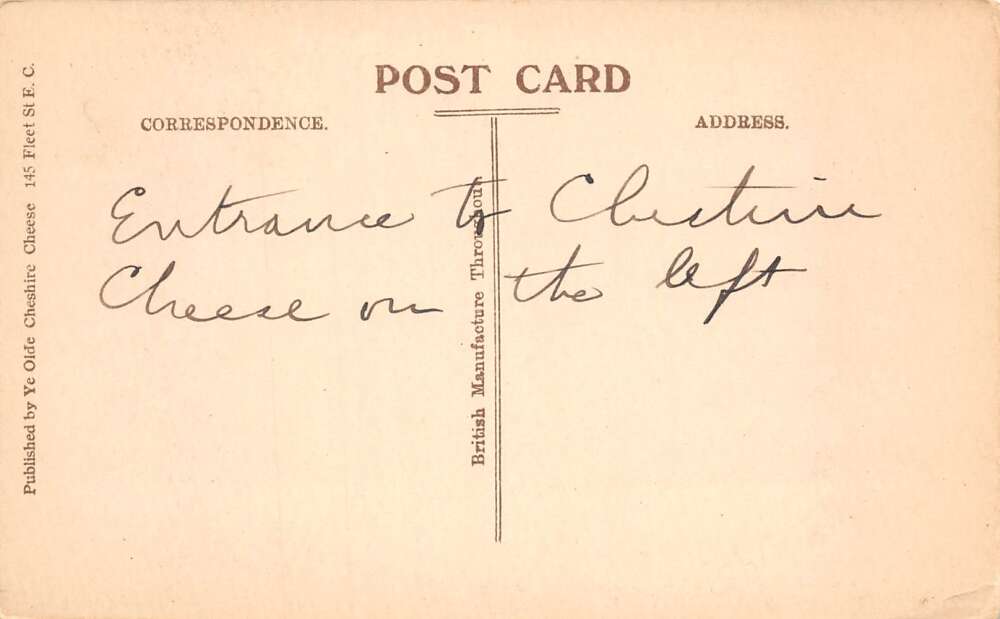 POST CARD
CORRESPONDENCE.
ADDRESS.
Entrance to Cheshire
Cheese on the left
British Manufacture Throughout
Published by Ye Olde Cheshire Cheese 145 Fleet St E. C.